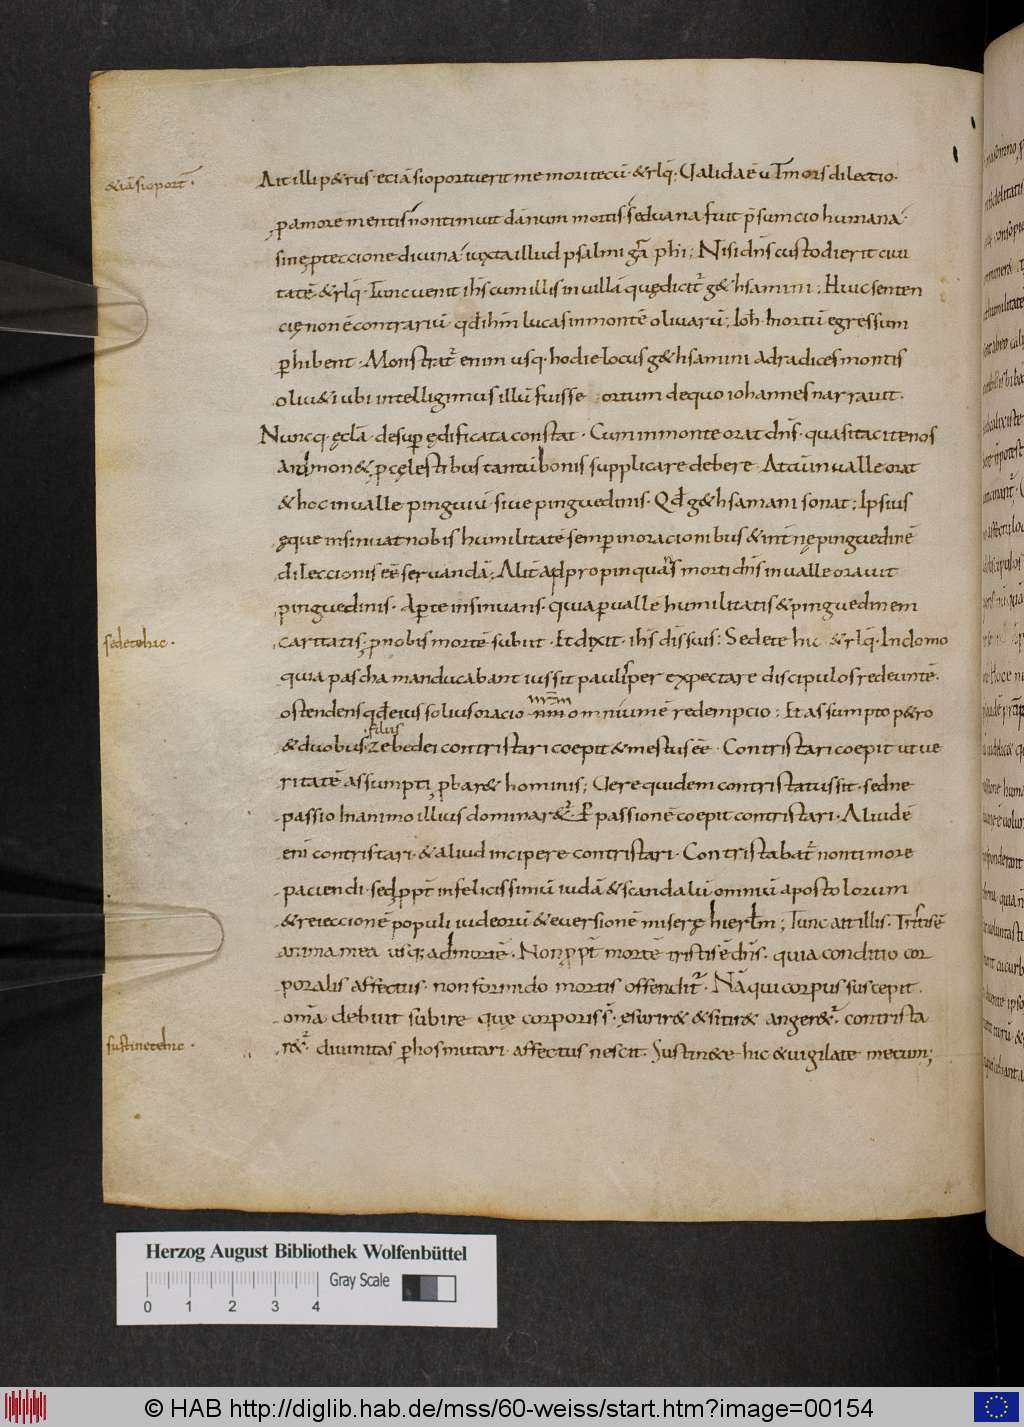 &iā si oport̄.
Ait illi p&rus · eciā si oportuerit me mori tecū · &rlq̄; Ualida ē ut mors dilectio·
p amore mentis non timuit dānum mortis sed uana fuit p̄sumcio humana·
sine p̱teccione diuina iuxta illud psalmigrā phi; Nisi dn̄s custodierit ciui
tatē · &rlq̄ · Tunc uenit ihs̄ cum illis in uillā quę dicit᷑ g&hsamini; Huic senten
cię non ē contrariū qd̄ ihm̄ lucas in montē oliuarū; Ioh̄ · hortū egressum
ꝑhibent · Monstrat᷑ enim usq· hodie locus g&hsamini ad radices montis
oliu&i ubi intelligimus illū fuisse ortum de quo iohannes narrauit·
Nuncq· ęclā · desuꝑ ędificata constat · Cum in monte orat dn̄s · quasi tacite nos
ammon& ꝓ cęlestibus tantū bonis supplicare debere · At cū in ualle orat
&hoc in ualle pinguiū · siue pinguedinis · Qd̄ g&hsamani sonat; Ipsius
ęque insinuat nobis humilitatē semꝑ in oracionibus & intnę pinguedinē
dileccionis eē seruandā; Alit̄ adpropinquās morti dn̄s in ualle orauit
pinguedinis · Aꝑte insinuans · quia ꝑ uallē humilitatis & pinguedinem
sedetehic·
caritatis, ꝓ nobis mortē subiit · Et dixit · ihs̄ dis suis; Sedete hic &rlq̄ · In domo
quia pascha manducabant iussit paulisper expectare discipulos redeuntē·
ostendens qd̄ eius solius oracio nn̄i omniumē redempcio; Et assumpto p&ro
filiis
&duobus zebedei contristari coepit &mestus eē · Contristari coepit ut ue
ritatē assumpti ꝓbar& hominis; Uere quidem contristatus sit · sed ne
passio in animo illius dominar&᷑ · P passionē coepit contristari · Aliud ē
eni contristari · &aliud incipere contristari · Contristabat᷑ non timore
paciendi · sed ꝓpt̄ infelicissimū iudā &scandalū omniū apostolorum
&reieccionē populi iudeorū &euersionē miserę hierlm̄; Tunc ait illis · Tristis ē
anima mea usq; ad mortē · Non ꝓpt̄ mortē tristis ē dn̄s · quia conditio cor
poralis affectus · non formido mortis offendit᷑ · Nā qui corpus suscepit·
omīa debuit subire quę corporis s̄ · ęsurir& &sitir& anger&᷑ · contrista
sustinetehic·
r&᷑ · diuinitas ꝑ hos mutari affectus nescit · Sustin&e hic &uigilate mecum;
Herzog August Bibliothek Wolfenbüttel
Gray Scale
0 1 2 3 4
© HAB http://diglib.hab.de/mss/60-weiss/start.htm?image=00154